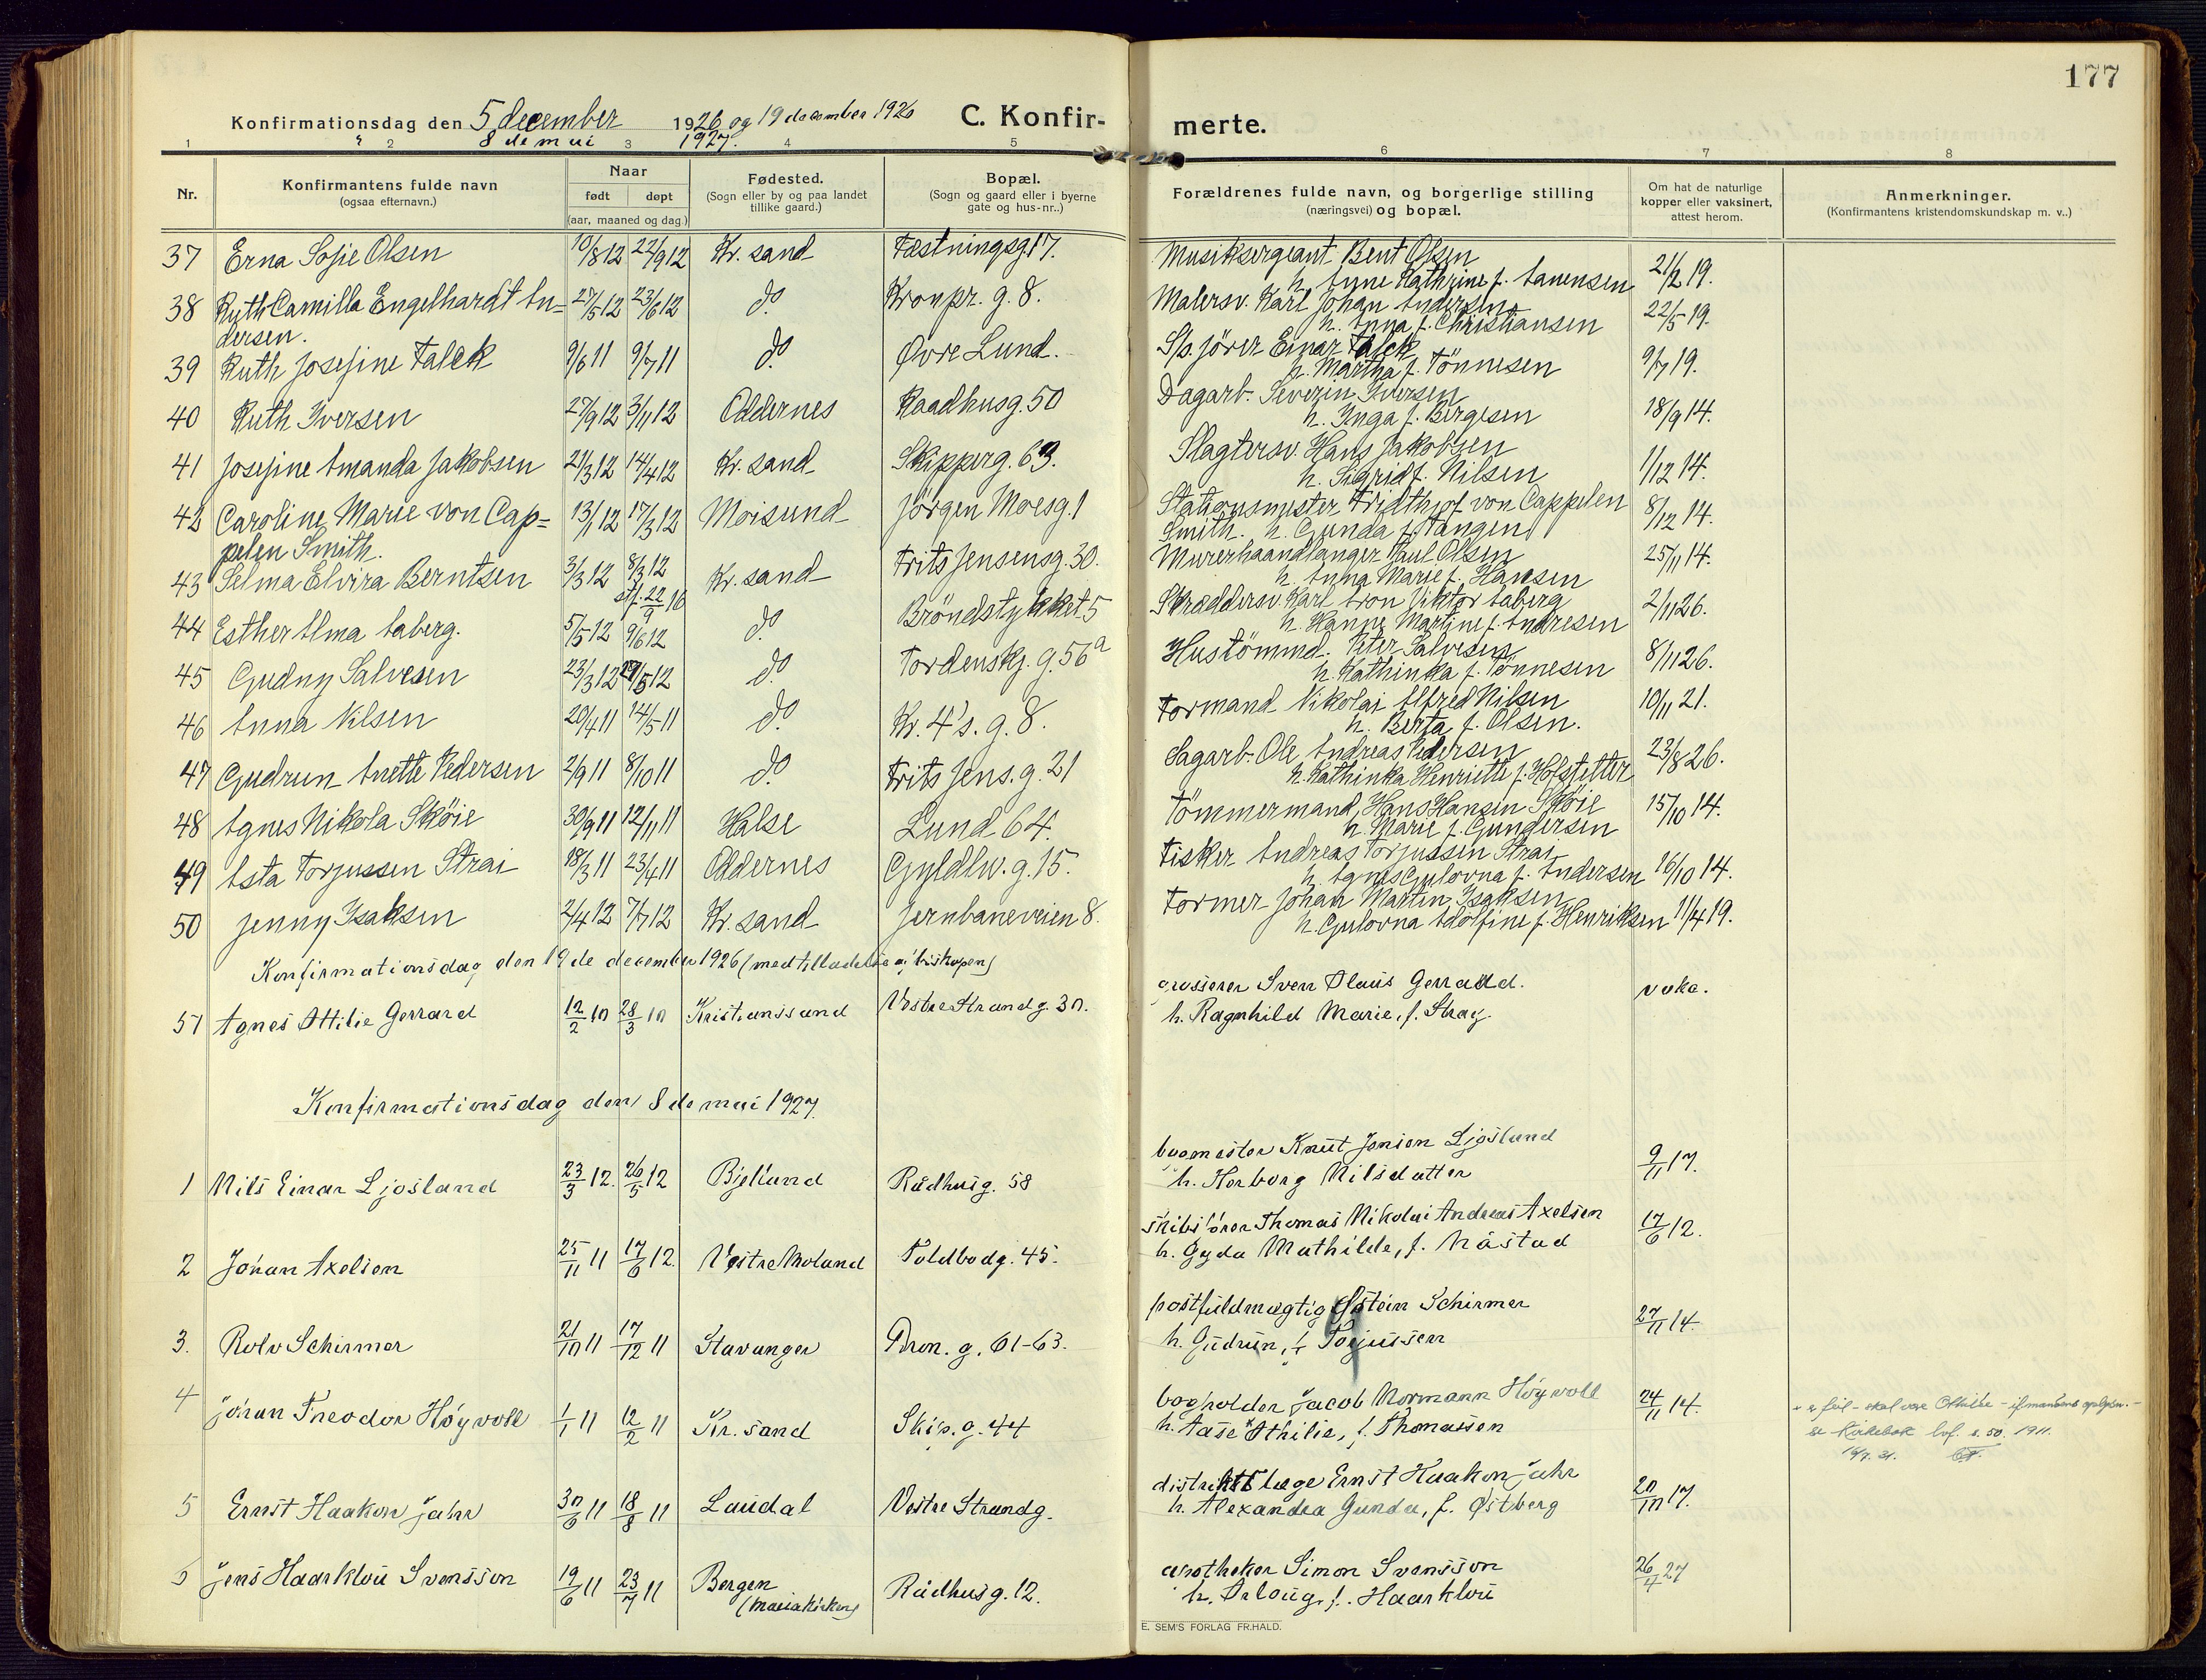 177
Konfirmationsdag den 5 december 1926 og 19 december 1926 C. Konfir- merte.
8 de mai 1927.
1 2 3 4 5 6 7 8
Nr. Konfirmantens fulde navn (ogsaa efternavn.) Naar født døpt (aar, maaned og dag.) Fødested. (Sogn eller by og paa landet tillike gaard.) Bopæl. (Sogn og gaard eller i byerne gate og hus-nr..) Forældrenes fulde navn, og borgerlige stilling (næringsvei) og bopæl. Om hat de naturlige kopper eller vaksinert, attest herom. Anmerkninger. (Konfirmantens kristendomskundskap m. v..)
37 Erna Sofie Olsen 10/8 12 22/9 12 Kr. sand Fæstningsg 17. Musiksergeant Bent Olsen
h. Ane Kathrine f. Aanensen 21/2 19.
38 Ruth Camilla Engelhardt An- 27/5 12 23/6 12 do Kronpr. g. 8. Malersv. Karl Johan Andersen
dersen. h. Anna f. Christiansen 22/5 19.
39 Ruth Josefine Falck 9/6 11 9/7 11 do Øvre Lund. S/s. förer Einar Falck
h. Martha f. Tönnesen 9/7 19.
40 Ruth Iversen 27/9 12 3/11 12 Oddernes Raadhusg. 50 Dagarb. Severin Iversen
h. Inga f. Bergesen 18/9 14.
41 Josefine Amanda Jakobsen 21/3 12 14/4 12 Kr. sand Skipperg. 63. Slagtersv. Hans Jakobsen
h. Sigrid f. Nilsen 1/12 14.
42 Caroline Marie von Cap= 13/1 12 17/3 12 Moisund Jörgen Moesg. 1 Stationsmester Fridthjof von Cappelen
pelen Smith. Smith. h. Gunda f. Tangen 8/12 14.
43 Selma Elvira Berntsen 3/3 12 8/3 12 Kr. sand Frits Jensensg. 30. Murerhaandlanger Paul Olsen
h. Anna Marie f. Hansen 25/11 14.
44 Esther Alma Aaberg. 5/5 12 9/6 12 do Bröndstykket 5 Skræddersv. Karl Aron Viktor Aaberg
h. Hanne Martine f. Andresen 2/11 26.
45 Gudny Salvesen 23/3 12 29/5 12 do Tordenskj. g. 56a Hustömmd. Peter Salvesen
h. Kathinka f. Tönnesen 8/11 26.
46 Anna Nilsen 20/4 11 14/5 11 do Kr. 4's. g. 8. Formand Nikolai Alfred Nilsen
h. Berta f. Olsen. 10/11 21.
47 Gudrun Anette Pedersen 2/9 11 8/10 11 do Frits Jens. g. 21 Dagarb. Ole Andreas Pedersen
h. Kathinka Henriette f. Hofstetter 23/8 26.
48 Agnes Nikola Sköie 30/9 11 12/11 11 Halse Lund 64. Tömmermand, Hans Hansen Sköie
h. Marie f. Gundersen 15/10 14.
49 Asta Torjussen Strai 18/3 11 23/4 11 Oddernes Gyldlw. g. 15. Fisker Andreas Torjussen Strai
h. Agnes Gulovna f. Andersen 16/10 14.
50 Jenny Isaksen 2/4 12 7/7 12 Kr. sand Jernbaneveien 8. Former Johan Martin Isaksen
h. Gulovna Adolfine f. Henriksen 11/4 19.
Konfirmationsdag den 19 de december 1926 (med tilladelse af biskopen)
51 Agnes Ottilie Gerrard 12/2 10 28/3 10 Kristianssund Vestre Strandg. 30. grosserer Sven Olaus Gerrard.
h. Ragnhild Marie, f. Stray. vake.
Konfirmationsdag den 8 de mai 1927
1 Nils Einar Ljosland 23/3 12. 26/5 12 Bjelland Rådhusg. 58 byggmester Knut Jonson Ljosland
h. Herborg Nilsdatter 9/11 17.
2 Johan Axelsen 25/11 11 17/6 12. Vestre Moland Toldbodg. 45. skibsfører Thomas Nikolai Andreas Axelsen
h. Gyda Mathilde, f. Nåstad 17/6 12.
3. Rolv Schirmer 21/10 11 17/12 11 Stavanger Dron. g. 61-63. postfuldmægtig Østein Schirmer
h. Gudrun, f. Torjussen 27/11 14.
4 Johan Theodor Høyvoll 1/1 11 12/2 11 Kr. sand Skip. g. 44 bogholder Jacob Normann Høyvoll
h. Aase Othilie, f. Thomassen 24/11 14. + er feil - skal være Othilie - if mandens opgiv. -
se Kirkebok s. 50. 1911.
5 Ernst Haakon Jahr 30/6 11 18/8 11 Laudal Vestre Strandg. distriktslæge Ernst Haakon Jahr
h. Alexandra Gunda, f. Østberg 20/10 17.
6 Jens Haarklou Svensson 19/6 11 23/7 11 Bergen Rådhusg. 12. apotheker Simon Svensson
(Mariakirken) h. Arloug, f. Haarklou 26/4 27
E. SEM'S FORLAG FR.HALD.